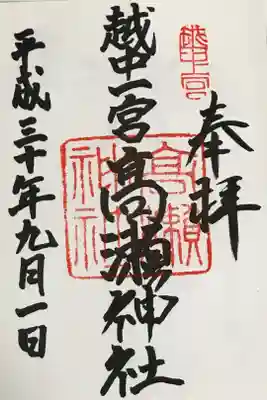 越中一宮
奉拝
越中一宮髙瀬神社
高瀬神社
平成三十年九月一日